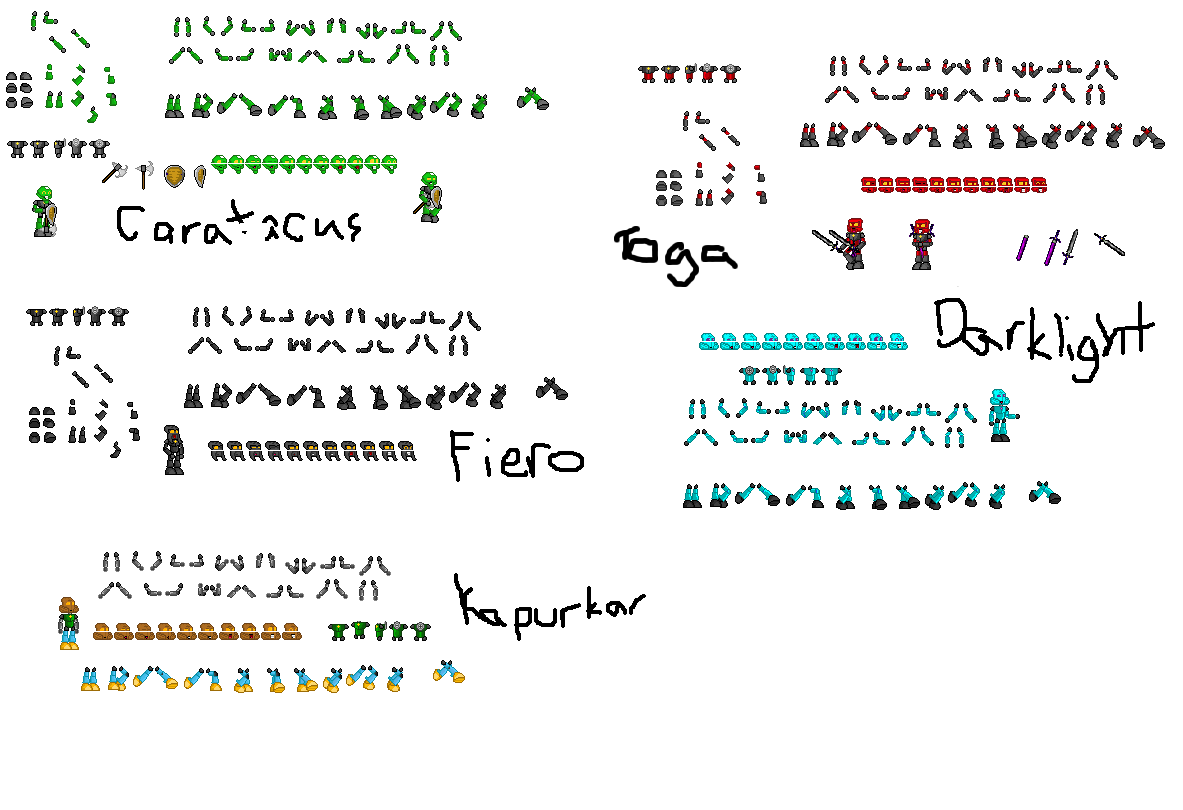 Caraticus
Toga
Darklight
Fiero
Kapurkar